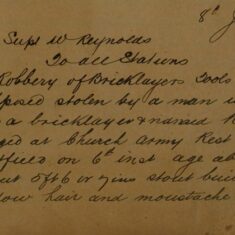 8th J
Supt W Reynolds
To all Stations
Robbery of Bricklayers Tools
posed stolen by a man
a bricklayer & named
ged at Church Army Rest
field on 6th inst age ab
ut 5ft 6 or 7ins stout buil
low hair and moustache